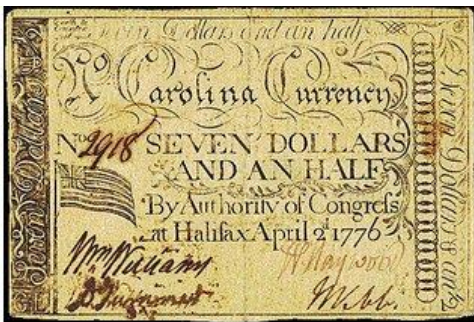 Seven Dollars and an half
No Carolina Currency
No. 2918 SEVEN DOLLARS
AND AN HALF
By Authority of Congress
at Halifax April 2d 1776
Wm Williams
H Haywood
Webb
Seven Dollars & an ½
Seven Dollars & an ½